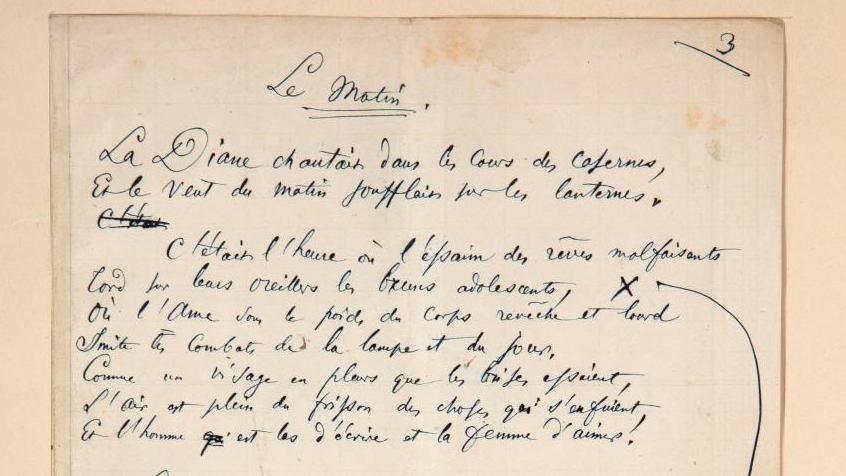 3
Le Matin.
La Diane chantait dans les cours des casernes,
Et le vent du matin soufflait sur les lanternes.
C'était
C'était l'heure où l'essaim des rêves malfaisants
Tord sur leurs oreillers les bruns adolescents, X
Où l'Ame sous le poids du corps revêche et lourd
Imite les combats de la lampe et du jour.
Comme un visage en pleurs que les brises essuient,
L'air est plein du frisson des choses qui s'enfuient,
Et l'homme est las d'écrire et la femme d'aimer!